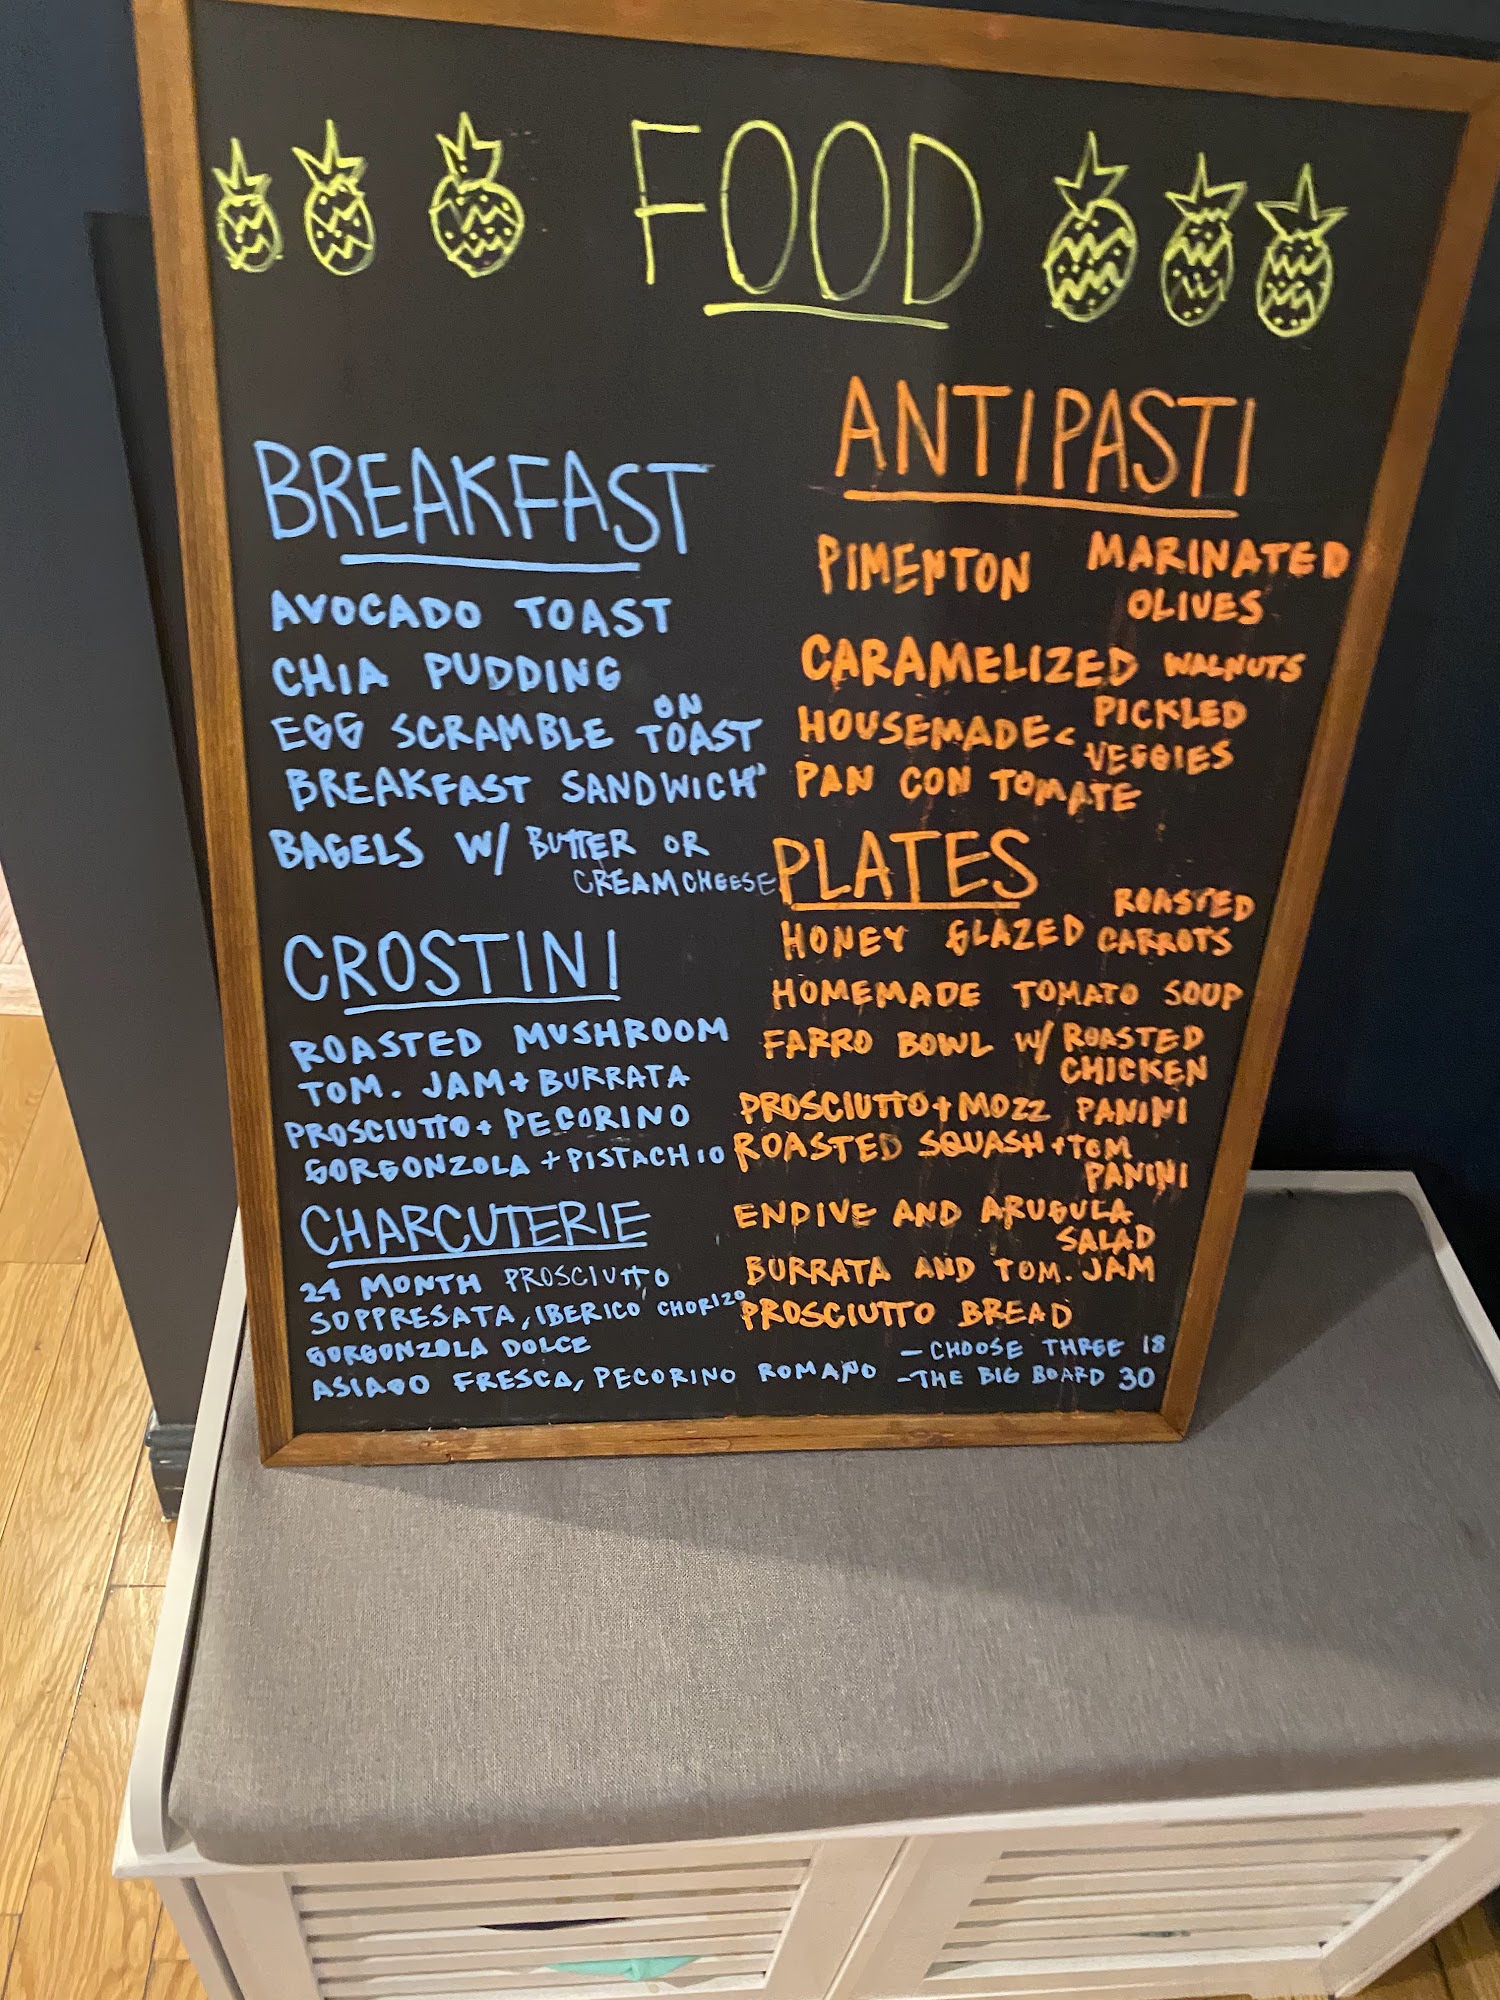 FOOD
BREAKFAST
AVOCADO TOAST
CHIA PUDDING
EGG SCRAMBLE ON TOAST
BREAKFAST SANDWICH
BAGELS W/ BUTTER OR
CREAMCHEESE
CROSTINI
ROASTED MUSHROOM
TOM. JAM + BURRATA
PROSCIUTTO + PECORINO
GORGONZOLA + PISTACHIO
CHARCUTERIE
24 MONTH PROSCIUTTO
SOPPRESATA, IBERICO CHORIZO
GORGONZOLA DOLCE
ASIAGO FRESCA, PECORINO ROMANO
- CHOOSE THREE 18
- THE BIG BOARD 30
ANTIPASTI
PIMENTON MARINATED
OLIVES
CARAMELIZED WALNUTS
HOUSEMADE PICKLED
VEGGIES
PAN CON TOMATE
PLATES
HONEY GLAZED ROASTED
CARROTS
HOMEMADE TOMATO SOUP
FARRO BOWL W/ ROASTED
CHICKEN
PROSCIUTTO + MOZZ PANINI
ROASTED SQUASH + TOM
PANINI
ENDIVE AND ARUGULA
SALAD
BURRATA AND TOM. JAM
PROSCIUTTO BREAD